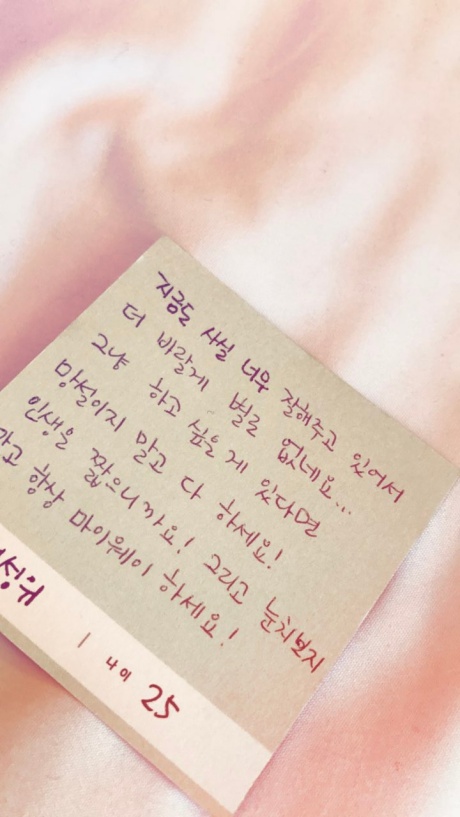 지금도 사실 너무 잘해주고 있어서
더 바랄게 별로 없네요...
그냥 하고 싶은 게 있다면
망설이지 말고 다 하세요!
인생은 짧으니까요! 그리고 눈치보지
항상 마이웨이 하세요!
| 나이 25